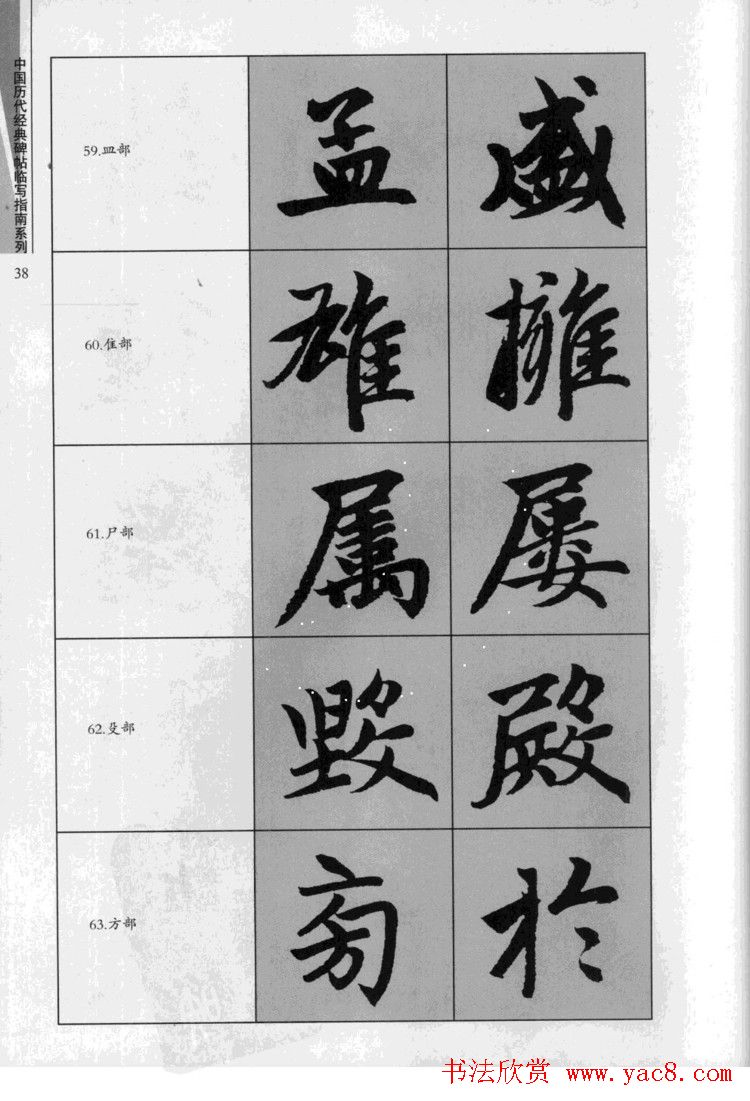 中国历代经典碑帖临写指南系列
38
59.皿部
孟 盛
60.隹部
雄 擁
61.尸部
属 屡
62.殳部
毁 殿
63.方部
於
书法欣赏 www.yac8.com